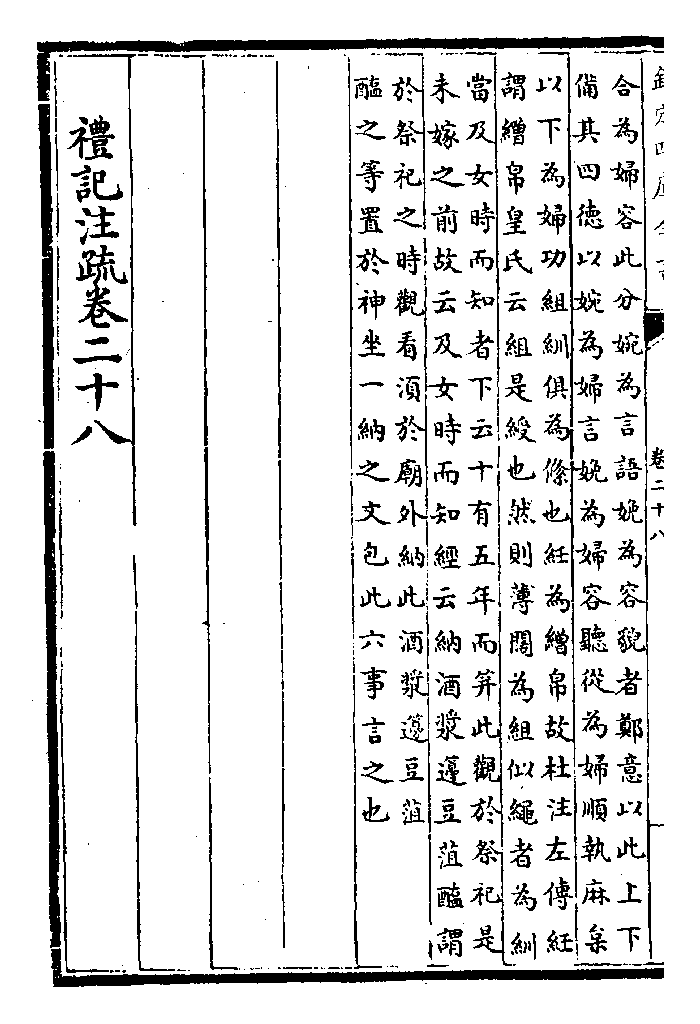 欽定四庫全書
卷二十八
合為婦容此分婉為言語娩為容貌者鄭意以此上下
備其四德以婉為婦言娩為婦容聽從為婦順執麻枲
以下為婦功組紃俱為絛也紝為繒帛故杜注左傳紝
謂繒帛皇氏云組是綬也然則薄闊為組似繩者為紃
當及女時而知者下云十有五年而笄此觀於祭祀是
未嫁之前故云及女時而知經云納酒漿籩豆菹醢謂
於祭祀之時觀看須於廟外納此酒漿籩豆菹
醢之等置於神坐一納之文包此六事言之也
禮記注疏卷二十八